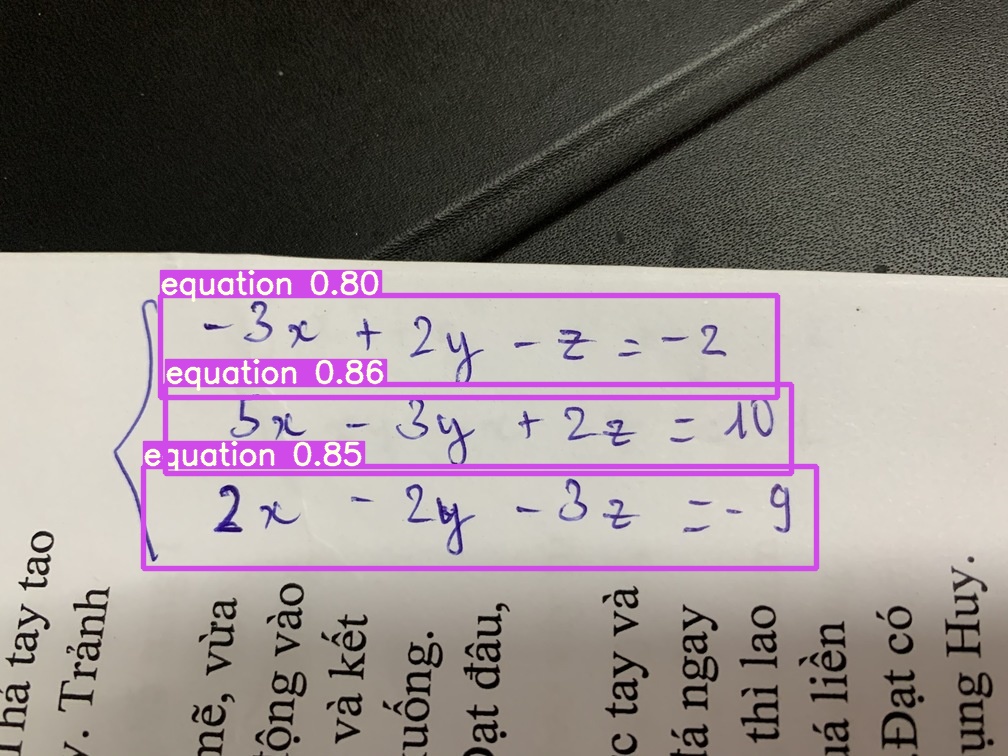 equation 0.80
-3x + 2y - z = -2
equation 0.86
5x - 3y + 2z = 10
equation 0.85
2x - 2y - 3z = - 9
tay tao
. Trảnh
mẽ, vừa
vào
và kết
đâu,
tay và
ngay
thì lao
liền
Đạt có
Huy.